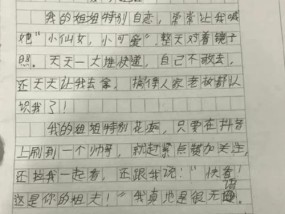 我的姐姐特别自恋，常常让我喊
她"小仙女，小可爱"，整天对着镜子
照。天天一大堆快递，自己不敢去，
还天天让我去拿，搞得人家老板都认
识我了！
我的姐姐特别花痴，只要在抖音
上刷到一个帅哥，就赶紧点赞加关注，
还拉我一起看，还跟我说："快看！
这是你的姐夫！"我真地是很无语。